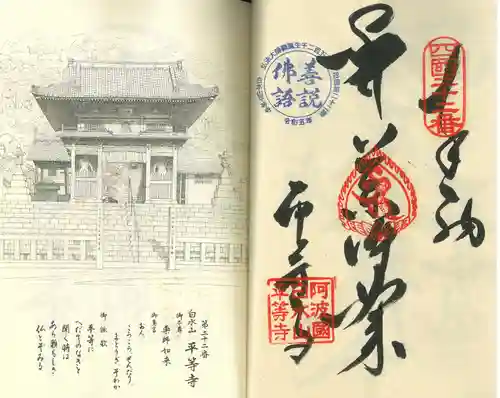 第二十二番
白水山 平等寺
御本尊
薬師如来
御真言
おん
ころころ せんだり
まとうぎ そわか
御詠歌
平等に
へだてのなきと
聞く時は
あら頼もしき
仏とぞみる
奉納
平等寺
善説
佛語
令和五年
阿波國
白水山
平等寺